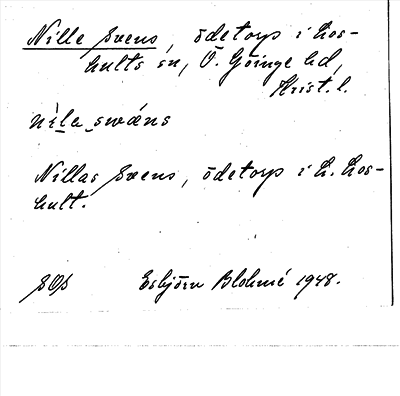 Nille Svens, ödetorp i Los-
hults sn, Ö. Göinge hd,
Krist. l.
nìla swǽns
Nillas Svens, ödetorp i L. Los-
hult.
SOS Esbjörn Blohmé 1948.